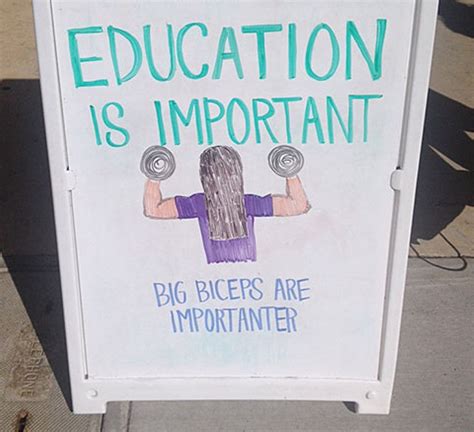 EDUCATION
IS IMPORTANT
BIG BICEPS ARE
IMPORTANTER